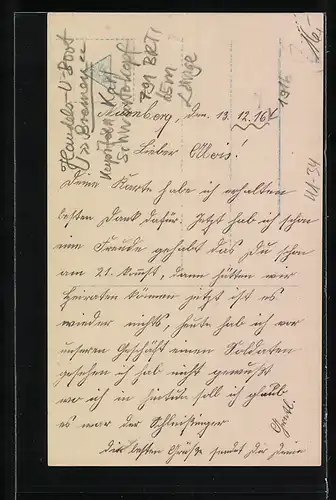 Handels U-Boot
U "Bremen"
Kapitän Karl
Schwartzkopf
791 BRT!
65m
Länge
16,-
1916
Nürnberg, den 13. 12. 16
Lieber Alois!
Deine Karte habe ich erhalten
besten Dank dafür. Jetzt hab ich schon
eine Freude gehabt das Du schon
am 21. komst, dann hätten wir
Heiraten können jetzt ist es
wieder nichts, heute hab ich vor
unseren Geschäft einen Soldaten
gesehen ich hab nicht gewußt
wo ich in hintun soll ich glaub
es war der Schleißinger
die besten Grüße sendet dir deine
Gretl.